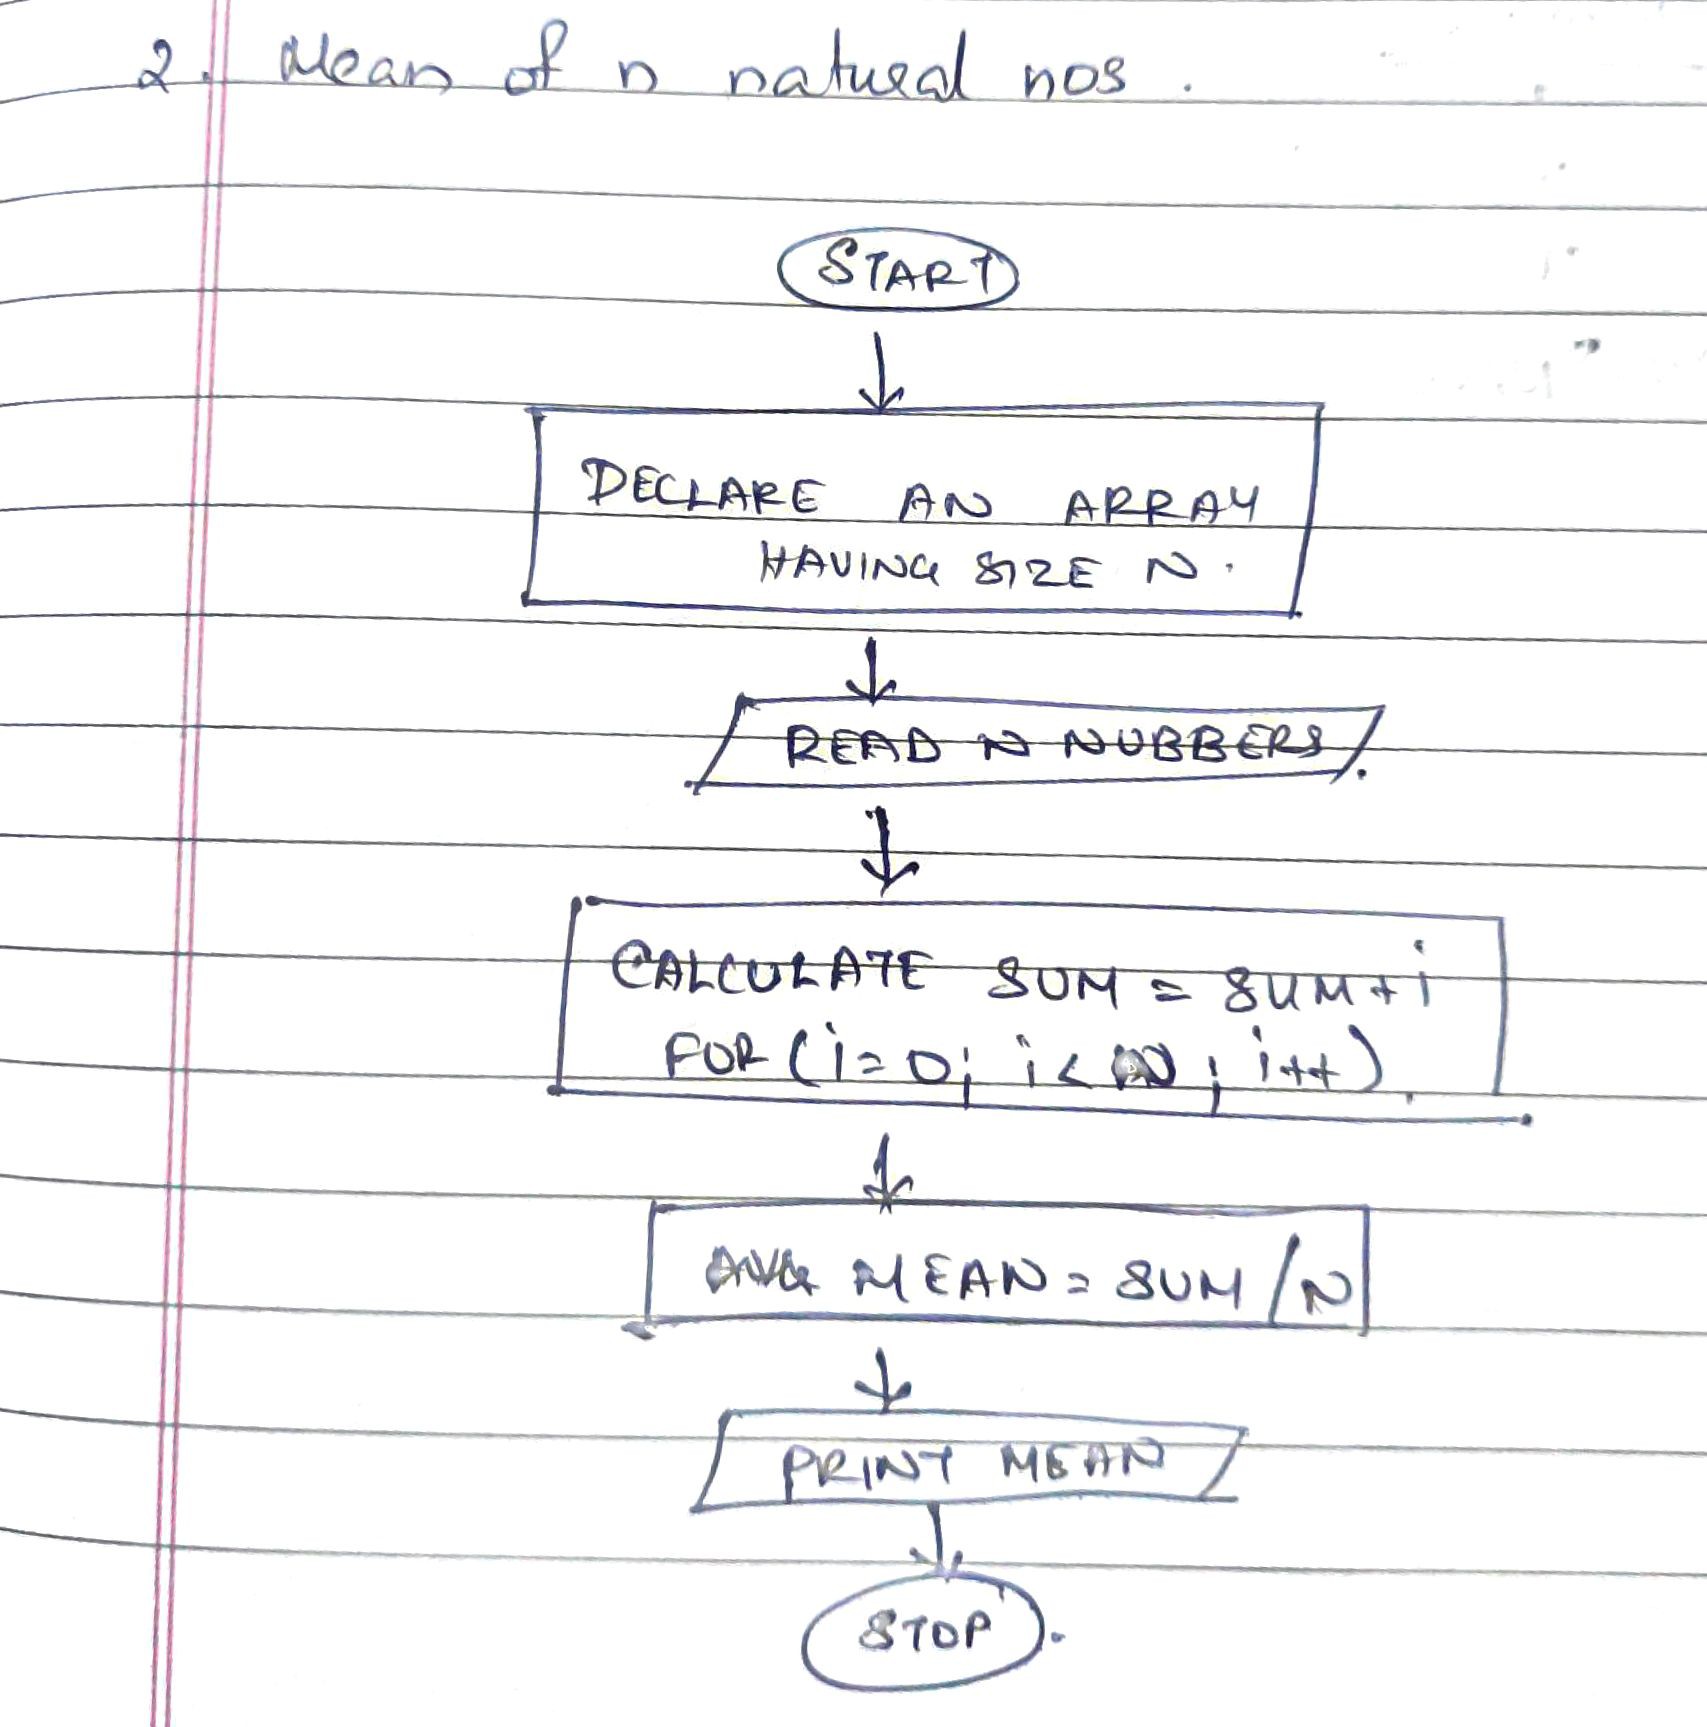 2. Mean of n natural nos.
START
DECLARE AN ARRAY
HAVING SIZE N.
READ N NUBBERS
CALCULATE SUM = SUM+i
FOR (i=0; i<N; i++)
AVG MEAN = SUM/N
PRINT MEAN
STOP